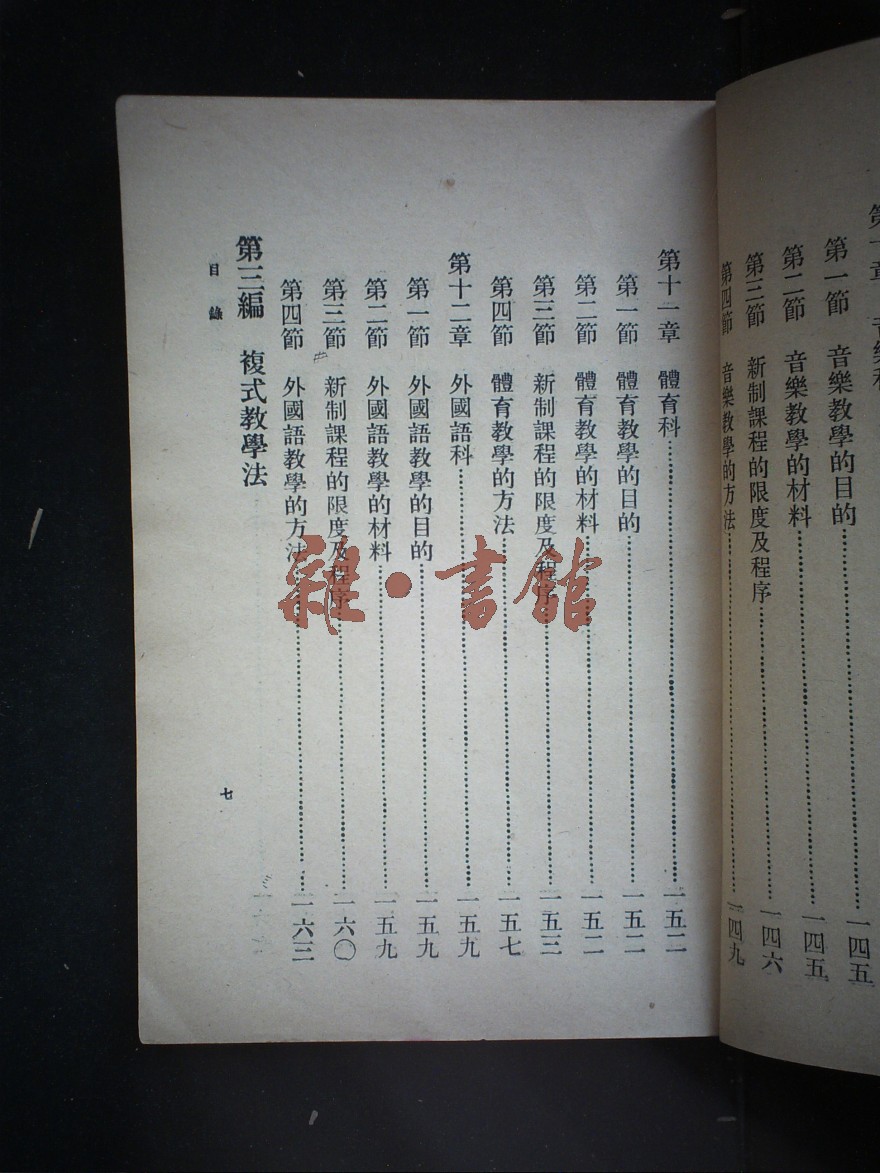 第十章 音樂科
第一節 音樂教學的目的……一四五
第二節 音樂教學的材料……一四五
第三節 新制課程的限度及程序……一四六
第四節 音樂教學的方法……一四九
第十一章 體育科……一五二
第一節 體育教學的目的……一五二
第二節 體育教學的材料……一五二
第三節 新制課程的限度及程序……一五三
第四節 體育教學的方法……一五七
第十二章 外國語科……一五九
第一節 外國語教學的目的……一五九
第二節 外國語教學的材料……一五九
第三節 新制課程的限度及程序……一六〇
第四節 外國語教學的方法……一六三
第三編 複式教學法
目錄
七
雜·書館